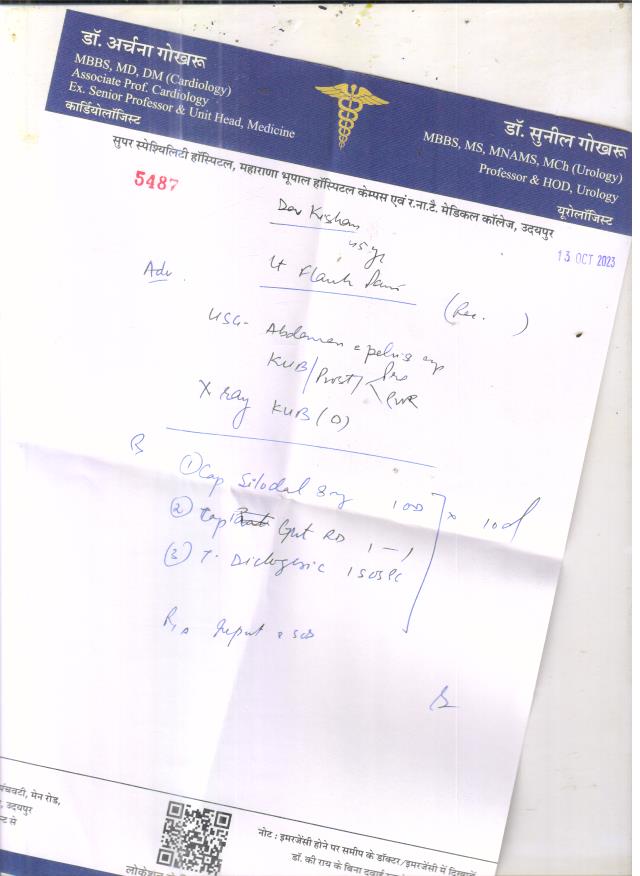 डॉ. अर्चना गोखरू
MBBS, MD, DM (Cardiology)
Associate Prof. Cardiology
Ex. Senior Professor & Unit Head, Medicine
कार्डियोलॉजिस्ट
डॉ. सुनील गोखरू
MBBS, MS, MNAMS, MCh (Urology)
Professor & HOD, Urology
यूरोलॉजिस्ट
सुपर स्पेश्यिलिटी हॉस्पिटल, महाराणा भूपाल हॉस्पिटल केम्पस एवं र.ना.टै. मेडिकल कॉलेज, उदयपुर
5487
13 OCT 2023
Dev Kishan
45 yr
Adv.
Lt Flank Pain
(Rec. )
USG - Abdomen & pelvis
KUB/Prost/ Pre
PVR
X ray KUB (D)
① Cap Silodal 8mg 1 OD
② Cap RD 1-1
x 10 d
③ T. 1 SOS PC
नोट : इमरजेंसी होने पर समीप के डॉक्टर/इमरजेंसी में दिखावें
डॉ. की राय के बिना दवाई
पंचवटी, मेन रोड,
उदयपुर